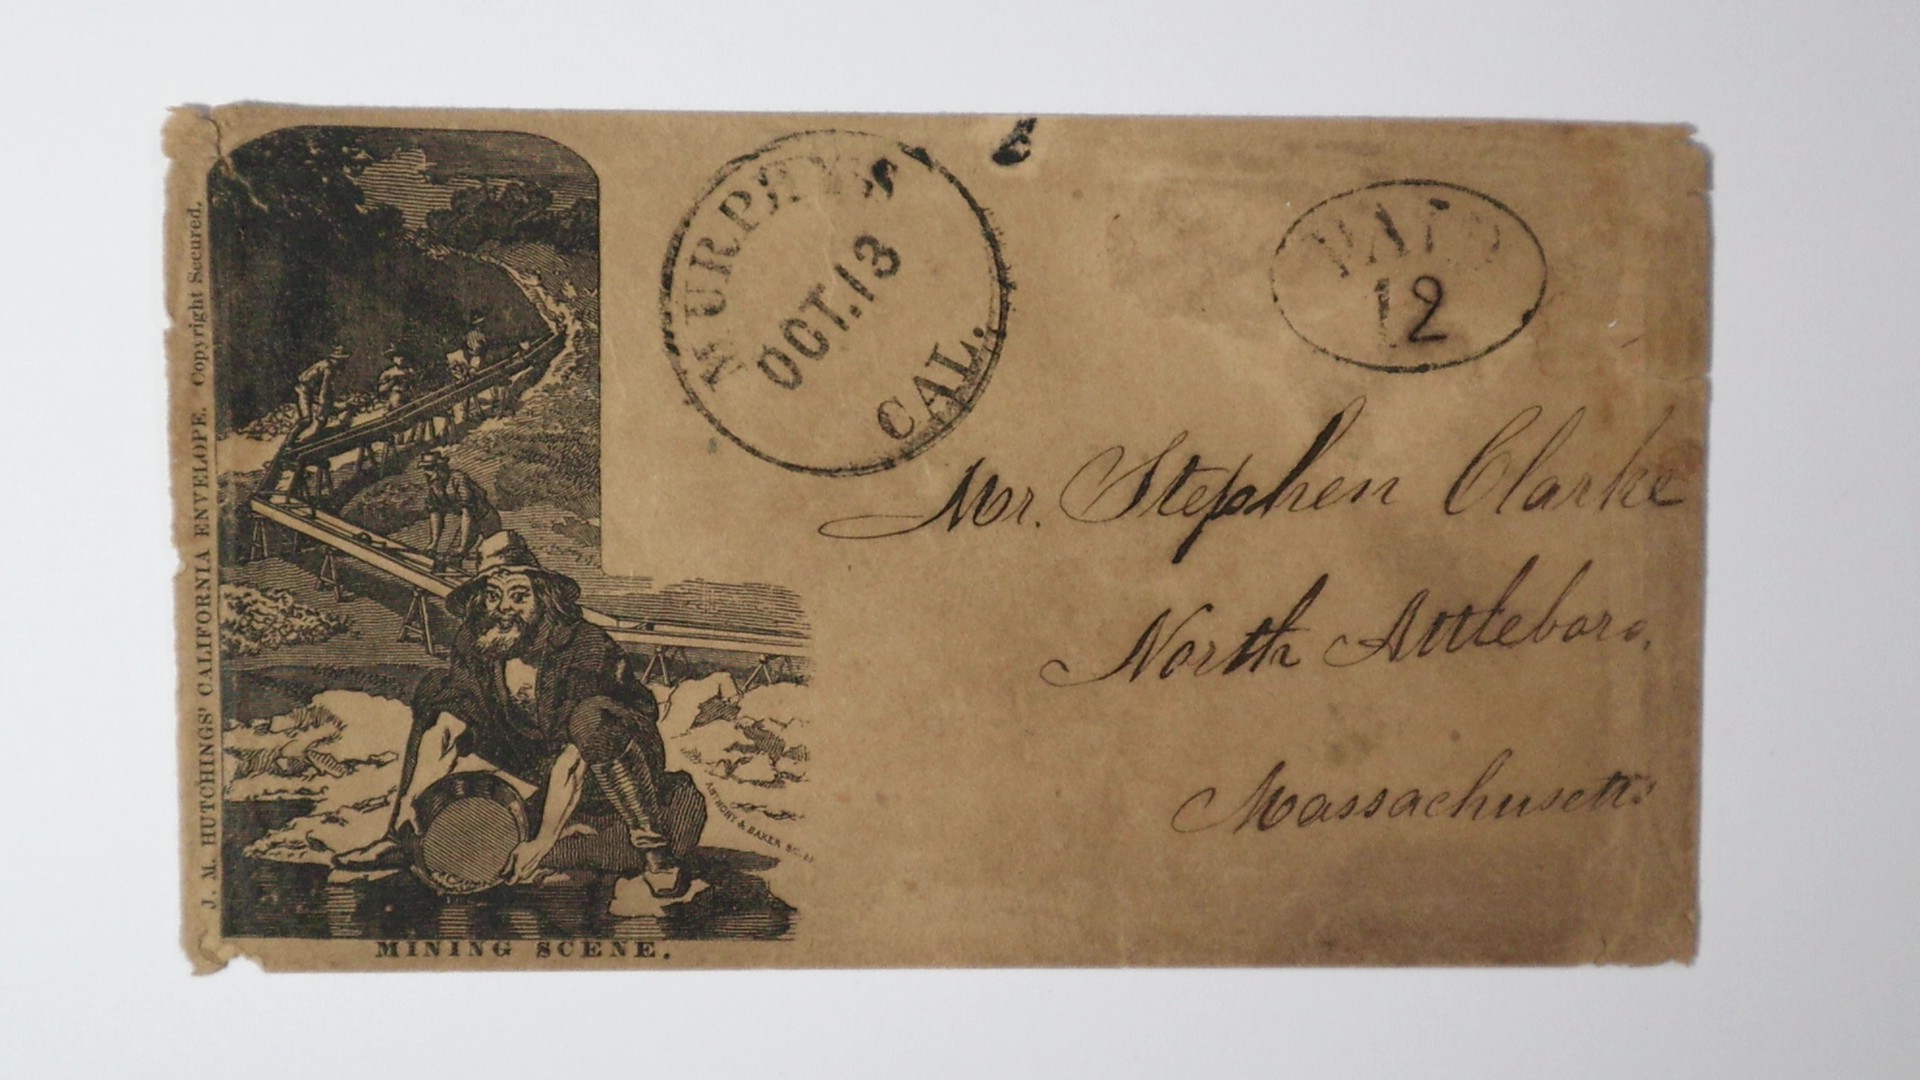 J. M. HUTCHINGS' CALIFORNIA ENVELOPE. Copyright Secured.
MURPHYS
OCT. 13
CAL.
PAID
12
Mr. Stephen Clarke
North Attleboro,
Massachusetts
ANTHONY & BAKER SC.
MINING SCENE.